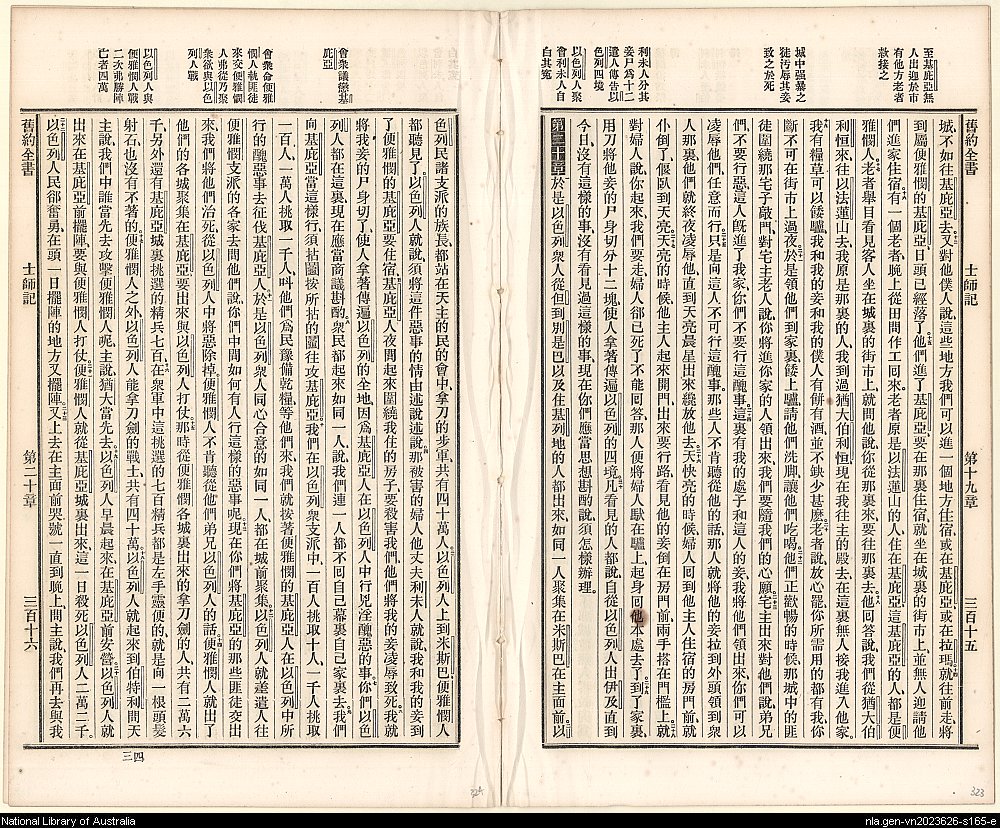 舊約全書 士師記 第十九章 三百十五
至基庇亞無
人出迎於市
有他方老者
款接之
城中强暴之
徒汚辱其妾
致之於死
利未人分其
妾尸為十二
遣人傳告以
色列四境
以色列人聚
會利未人自
白其寃
城、不如往基庇亞去、又對他僕人說、這些地方我們可以進一個地方住宿、或在基庇亞或在拉瑪、就往前走、將
到屬便雅憫的基庇亞、日頭已經落了、他們進了基庇亞、要在那裏住宿、就坐在城裏的街市上、並無人迎請他
們進家住宿、有一個老者晚上從田間作工囘來、老者原是以法蓮山的人、住在基庇亞、這基庇亞的人、都是便
雅憫人、老者舉目看見客人坐在城裏的街市上、就問他說、你從那裏來、要往那裏去、他囘答說、我們從猶大伯
利恒來、往以法蓮山去、我原是那裏的人、我到過猶大伯利恒、現在我往主的殿去、在這裏無人接我進入他家、
我有糧草可以餧驢、我和我的妾和我的僕人有餅有酒、並不缺少甚麽、老者說、放心罷、你所需用的都有我、你
斷不可在街市上過夜、於是領他們到家裏、餧上驢、請他們洗脚、讓他們吃喝、他們正歡暢的時候、那城中的匪
徒圍繞那宅子敲門、對宅主老人說、你將進你家的人領出來、我們要隨我們的心願、宅主出來對他們說、弟兄
們、不要行惡、這人旣進了我家、你們不要行這醜事、這裏有我的處子和這人的妾、我將他們領出來、你們可以
凌辱他們、任意而行、只是向這人不可行這醜事、那些人不肯聽從他的話、那人就將他的妾拉到外頭領到衆
人那裏、他們就終夜凌辱他、直到天亮、晨星出來纔放他去、天快亮的時候、婦人囘到他主人住宿的房門前、就
仆倒了、偃臥到天亮、天亮的時候、他主人起來開門出來要行路、看見他的妾倒在房門前、兩手搭在門檻上、就
對婦人說、你起來、我們要走、婦人卻已死了、不能囘答、那人便將婦人馱在驢上、起身囘他本處去了、到了家裏、
用刀將他妾的尸身切分十二塊、使人拿著傳遍以色列的四境、凡看見的人都說、自從以色列人出伊及直到
今日、沒有這樣的事、沒有看見過這樣的事、現在你們應當思想斟酌說、須怎樣辦理。
第二十章 於是以色列衆人從但到別是巴、以及住基列地的人都出來、如同一人、聚集在米斯巴在主面前、以
舊約全書 士師記 第二十章 三百十六
自其寃
會衆議懲基
庇亞
會衆命便雅
憫人執匪徒
來交便雅憫
人弗從乃聚
衆欲與以色
列人戰
以色列人與
便雅憫人戰
二次弗勝陣
亡者四萬
色列民諸支派的族長、都站在天主的民的會中、拿刀的步軍、共有四十萬人、以色列人上到米斯巴、便雅憫人
都聽見了、以色列人就說、須將這件惡事的情由述說述說、那被害的婦人他丈夫利未人就說、我和我的妾到
了便雅憫的基庇亞要住宿、基庇亞人夜間起來圍繞我住的房子、要殺害我們、他們將我的妾凌辱致死、我就
將我妾的尸身切了、使人拿著傳遍以色列的全地、因爲基庇亞人在以色列人中行兇淫醜惡的事、你們以色
列人都在這裏、現在應當商議斟酌、衆民都起來如同一人、說、我們連一人都不囘自己幕裏自己家裏去、我們
向基庇亞當這樣行、須拈鬮、按所拈的鬮往攻基庇亞、我們在以色列衆支派中、一百人挑取十人、一千人挑取
一百人、一萬人挑取一千人、叫他們爲民豫備乾糧等他們來、我們就按著便雅憫的基庇亞人在以色列中所
行的醜惡事去征伐基庇亞人、於是以色列衆人同心合意的如同一人、都在城前聚集、以色列人就遣人往
便雅憫支派的各家去、問他們說、你們中間如何有人行這樣的惡事呢、現在你們將基庇亞的那些匪徒交出
來、我們將他們治死、從以色列人中將惡除掉、便雅憫人不肯聽從他們弟兄以色列人的話、便雅憫人就出了
他們的各城、聚集在基庇亞、要出來與以色列人打仗、那時從便雅憫各城裏出來的拿刀劍的人、共有二萬六
千、另外還有基庇亞城裏挑選的精兵七百、在衆軍中這挑選的七百精兵都是左手靈便的、就是向一根頭髮
射石、也沒有不著的、便雅憫人之外、以色列人能拿刀劍的戰士、共有四十萬、以色列人就起來到伯特利問天
主說、我們中誰當先去攻擊便雅憫人呢、主說、猶大當先去、以色列人早晨起來、在基庇亞前安營、以色列人就
出來在基庇亞前擺陣、要與便雅憫人打仗、便雅憫人就從基庇亞城裏出來、這一日殺死以色列人二萬二千、
以色列人民卻奮勇、在頭一日擺陣的地方又擺陣、又上去在主面前哭號、一直到晚上、問主說、我們再去與我
三四
324
323
National Library of Australia
nla.gen-vn2023626-s165-e